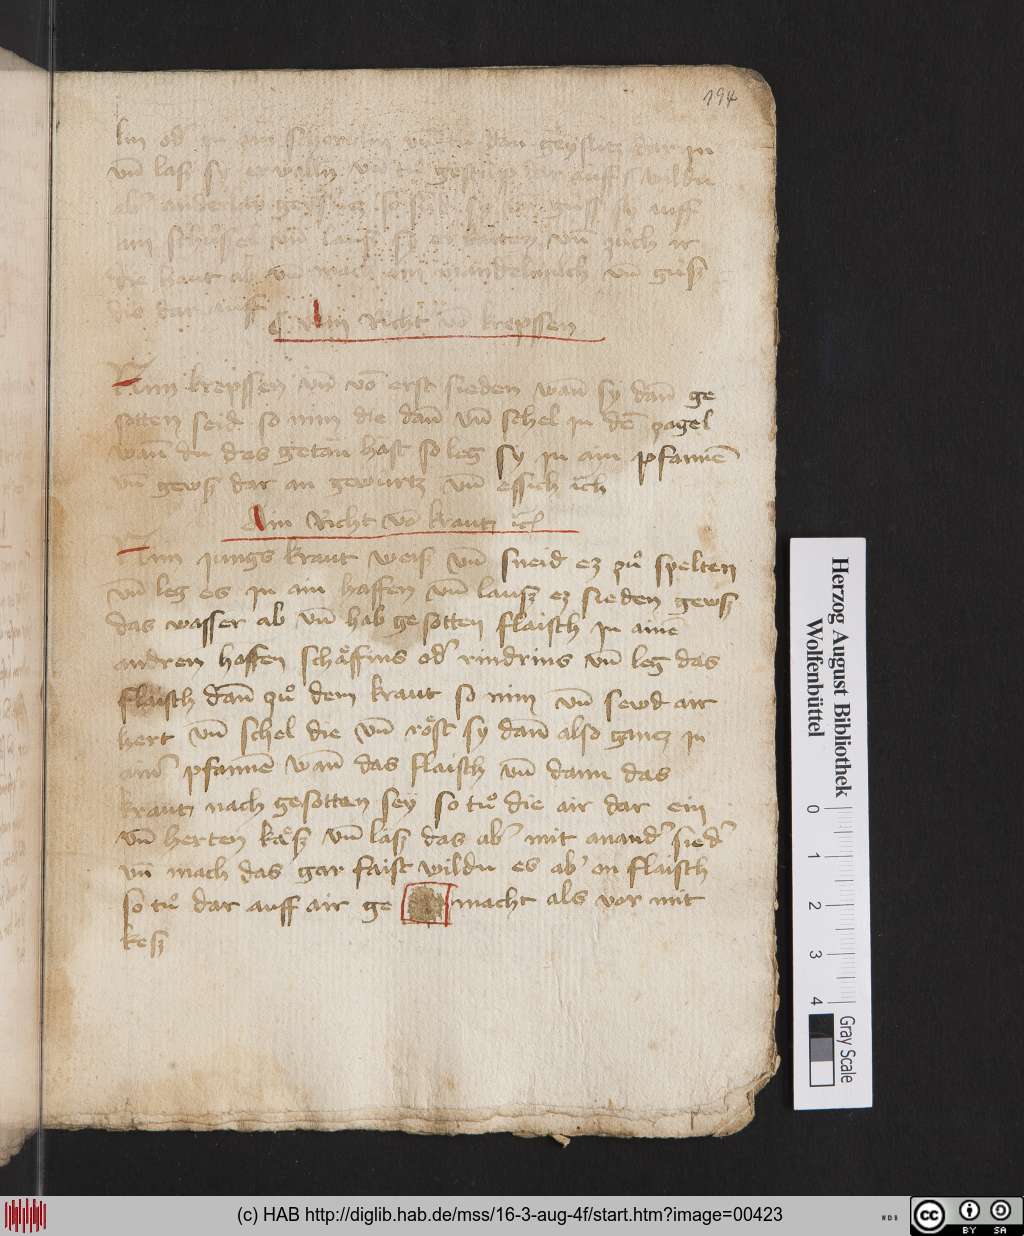 194
lin od' in ain vn̄ dan̄ dar in
vn̄ lasz sy erwalln vn̄ tuͦ gestüp dar auff wildu
ab' anderlay so sy auff
ain schüssel vn̄ lausz sy er kalten vn̄ züch ir
die haut ab vn̄ mach ain mandelmilch vn̄ güsz
die dar auff
Ain Richt võ krepssen
Nim krepssen vn̄ võ erst sieden wan̄ sy dan̄ ge
sotten seid so nim die dan̄ vn̄ schel in dē zagel
wan̄ du das getan hast so leg sy in ain pfannē
vn̄ gewsz dar an gewurtz vn̄ essich ic̄h
Ain Richt võ krautz ic̄h
Nim jungs kraut weisz vn̄ sneid ez zuͦ spelten
vn̄ leg es in ain haffen vn̄ lausz ez sieden gewsz
das wasser ab vn̄ hab gesotten flaisch in ainē
andren haffen schäffins od' rindrins vn̄ leg das
flaisch dan̄ zuͦ dem kraut so nim vn̄ sewd air
hert vn̄ schel die vn̄ röst sy dan̄ also gancz in
ain' pfannē wan̄ das flaisch vn̄ dann das
krautz nach gesotten sey so tuͦ die air dar ein
vn̄ herten käsz vn̄ lasz das ab' mit anand' sied'
vn̄ mach das gar faist wildu es ab' on flaisch
so tuͦ dar auff air ge macht als vor mit
kesz
Herzog August Bibliothek
Wolfenbüttel
0 1 2 3 4
Gray Scale
(c) HAB http://diglib.hab.de/mss/16-3-aug-4f/start.htm?image=00423
WDB
cc BY SA